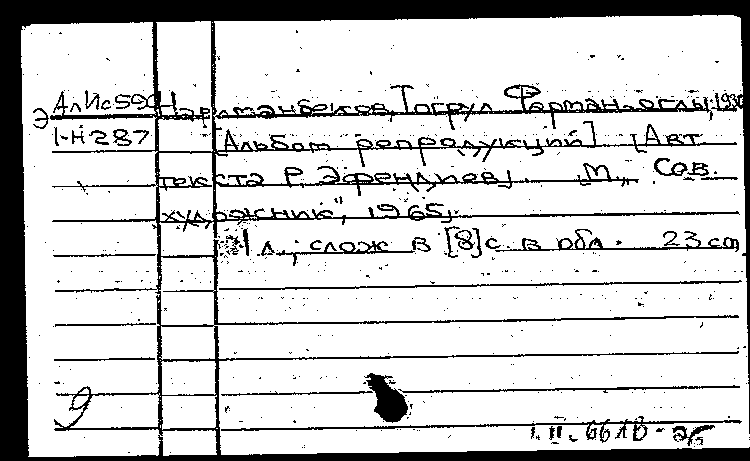 Э АлИс590 Нариманбеков, Тогрул Фарман-оглы, 1930
1-Н287 [Альбом репродукций] [Авт.
текста Р. Эфендиев]. М., „Сов.
художник", 1965.
1 л., слож в [8] с. в обл. 23 cm
9
1.II.66